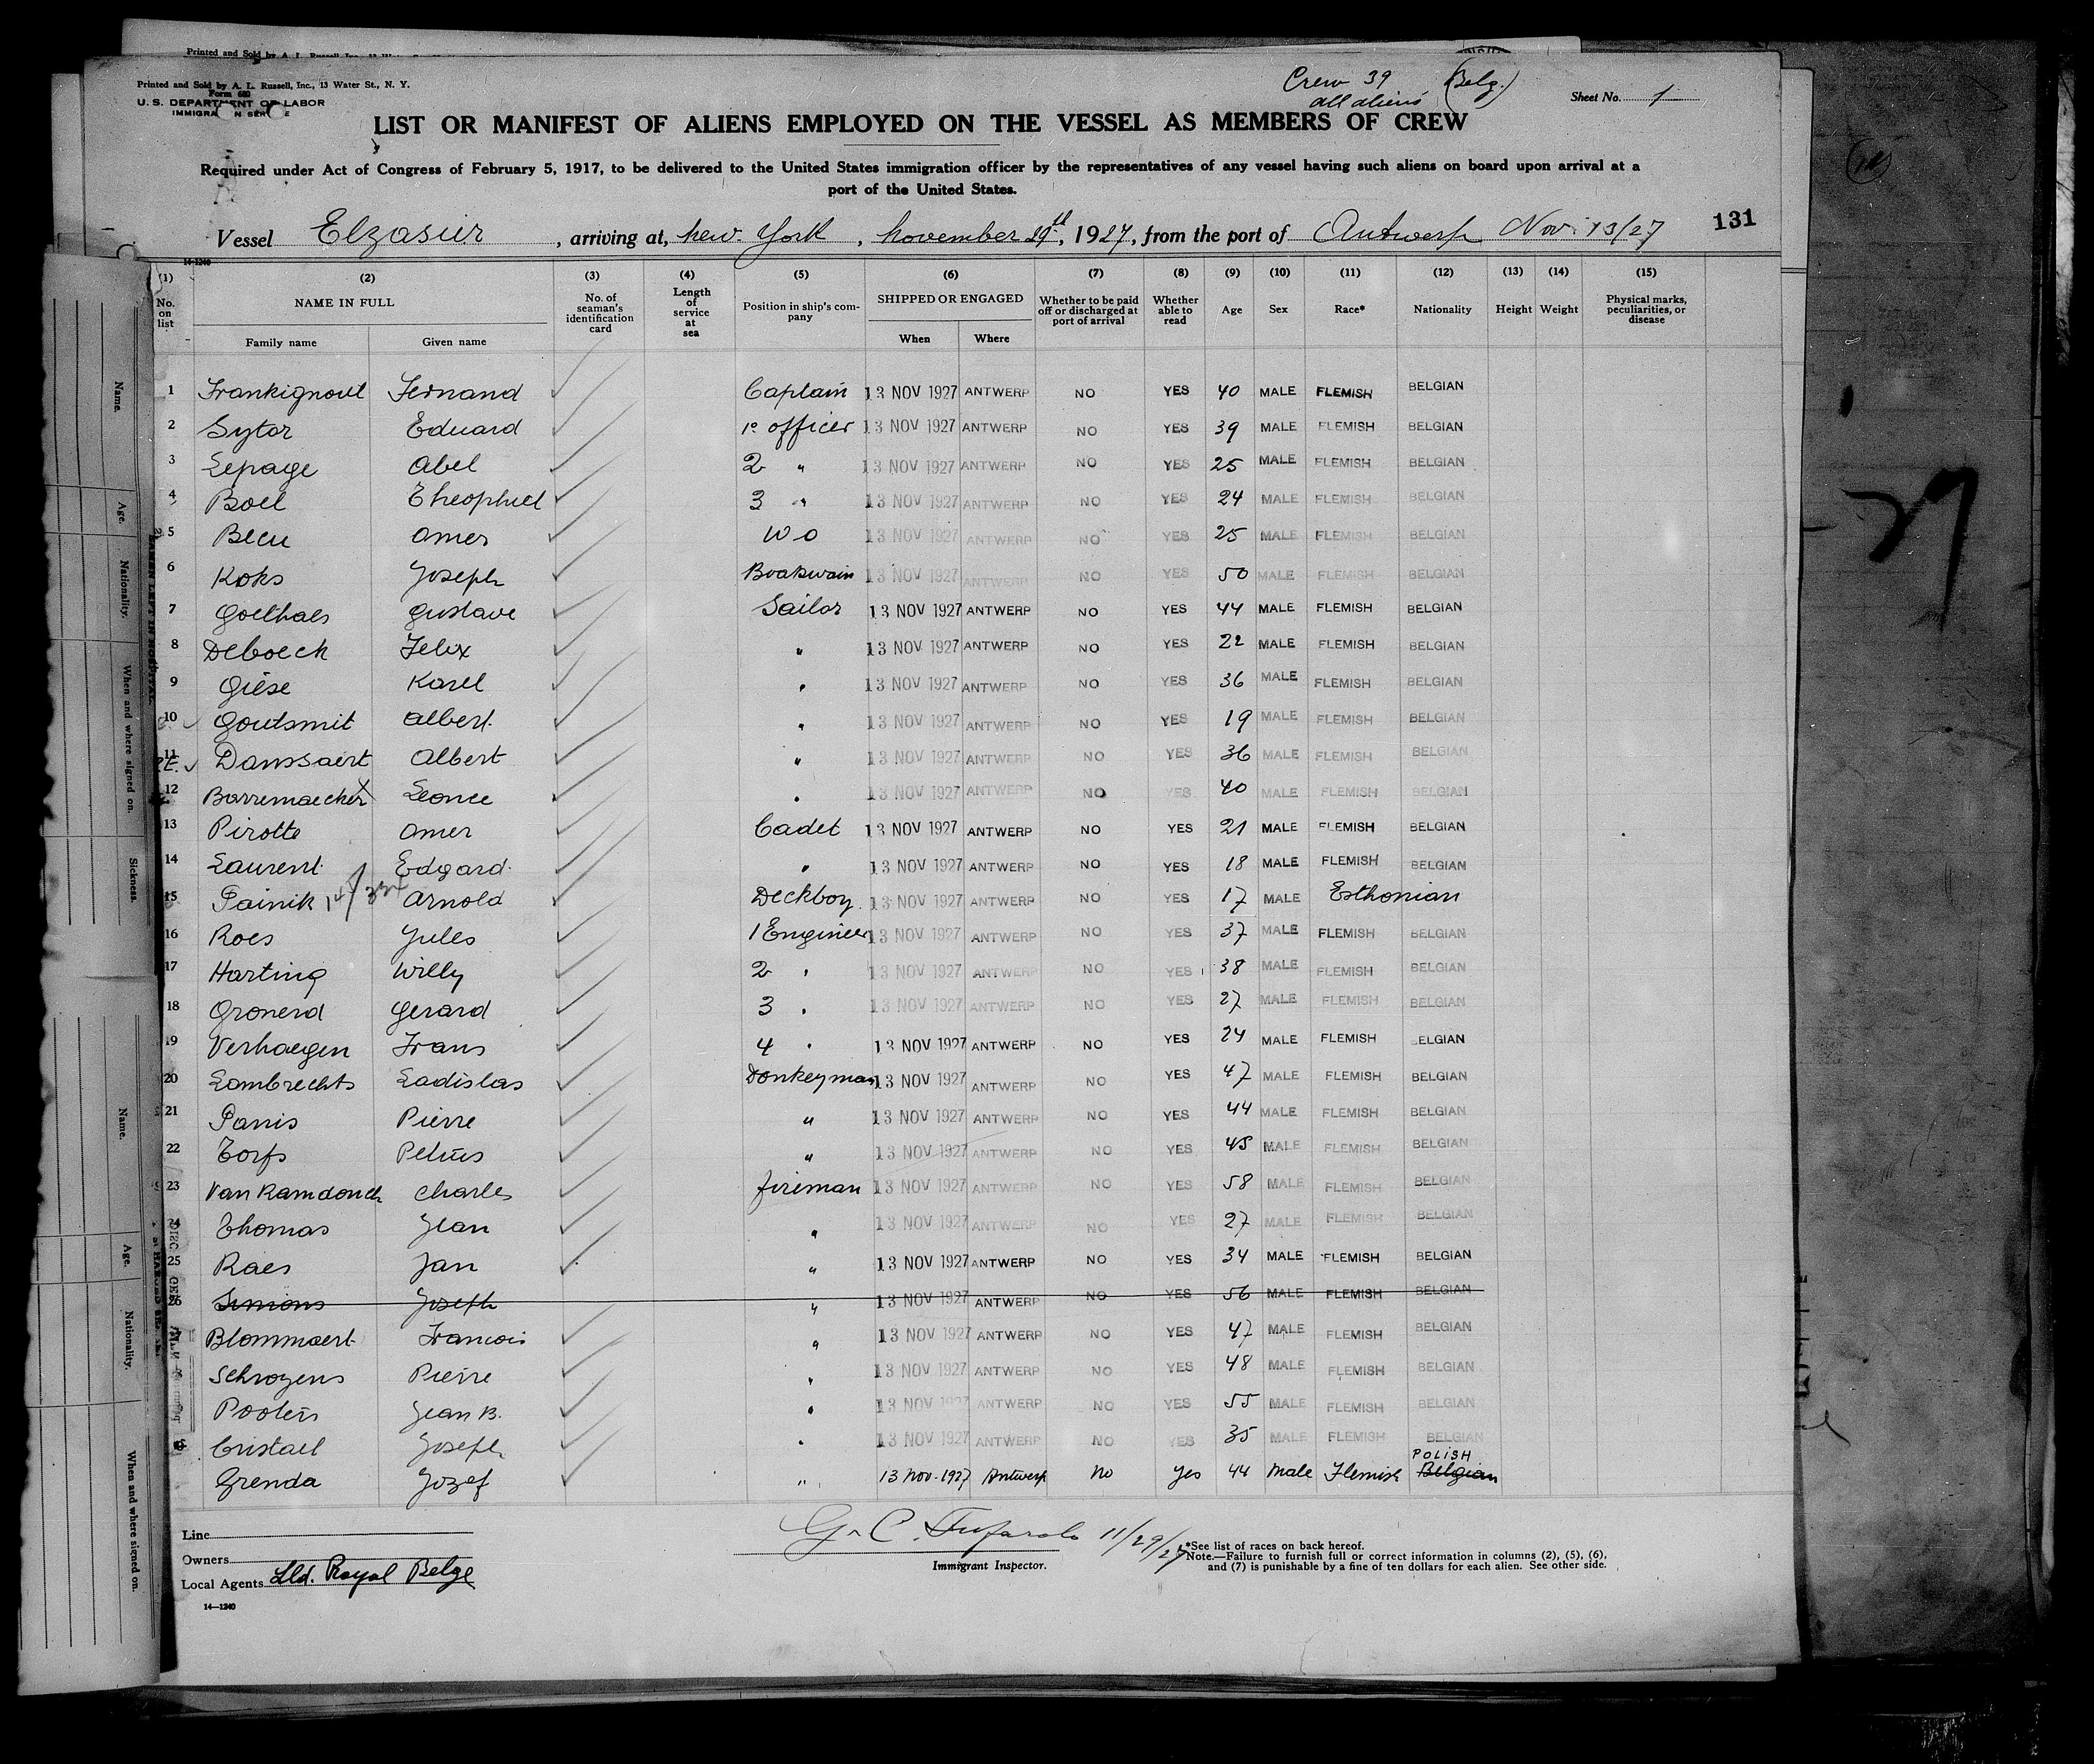 Printed and Sold by A. L. Russell, Inc., 13 Water St., N. Y.
Form 680
U. S. DEPARTMENT OF LABOR
IMMIGRATION SERVICE
Crew 39 (Belg.)
all aliens
Sheet No. 1
LIST OR MANIFEST OF ALIENS EMPLOYED ON THE VESSEL AS MEMBERS OF CREW
Required under Act of Congress of February 5, 1917, to be delivered to the United States immigration officer by the representatives of any vessel having such aliens on board upon arrival at a
port of the United States.
Vessel Elzasier, arriving at, new. York, november 29th, 1927, from the port of Antwerp Nov. 13/27 131
14-1240
(1) (2) (3) (4) (5) (6) (7) (8) (9) (10) (11) (12) (13) (14) (15)
No. on list NAME IN FULL Family name Given name No. of seaman's identification card Length of service at sea Position in ship's company SHIPPED OR ENGAGED When Where Whether to be paid off or discharged at port of arrival Whether able to read Age Sex Race* Nationality Height Weight Physical marks, peculiarities, or disease
1 Frankignoul Fernand Captain 13 NOV 1927 ANTWERP NO YES 40 MALE FLEMISH BELGIAN
2 Sytor Eduard 1e officer 13 NOV 1927 ANTWERP NO YES 39 MALE FLEMISH BELGIAN
3 Lepage Abel 2 " 13 NOV 1927 ANTWERP NO YES 25 MALE FLEMISH BELGIAN
4 Boel Theophiel 3 " 13 NOV 1927 ANTWERP NO YES 24 MALE FLEMISH BELGIAN
5 Becu Omer W O 13 NOV 1927 ANTWERP NO YES 25 MALE FLEMISH BELGIAN
6 Koks Joseph Boatswain 13 NOV 1927 ANTWERP NO YES 50 MALE FLEMISH BELGIAN
7 Goethals Gustave Sailor 13 NOV 1927 ANTWERP NO YES 44 MALE FLEMISH BELGIAN
8 Deboeck Felix " 13 NOV 1927 ANTWERP NO YES 22 MALE FLEMISH BELGIAN
9 Giese Karel " 13 NOV 1927 ANTWERP NO YES 36 MALE FLEMISH BELGIAN
10 Goudsmit Albert " 13 NOV 1927 ANTWERP NO YES 19 MALE FLEMISH BELGIAN
11 Danssaert Albert " 13 NOV 1927 ANTWERP NO YES 36 MALE FLEMISH BELGIAN
12 Barremaecker Leonce " 13 NOV 1927 ANTWERP NO YES 40 MALE FLEMISH BELGIAN
13 Pirotte Omer Cadet 13 NOV 1927 ANTWERP NO YES 21 MALE FLEMISH BELGIAN
14 Laurent Edgard " 13 NOV 1927 ANTWERP NO YES 18 MALE FLEMISH BELGIAN
15 Painik Arnold Deckboy 13 NOV 1927 ANTWERP NO YES 17 MALE Esthonian
16 Roes Jules 1 Engineer 13 NOV 1927 ANTWERP NO YES 37 MALE FLEMISH BELGIAN
17 Harting Willy 2 " 13 NOV 1927 ANTWERP NO YES 38 MALE FLEMISH BELGIAN
18 Gronerd Gerard 3 " 13 NOV 1927 ANTWERP NO YES 27 MALE FLEMISH BELGIAN
19 Verhaegen Frans 4 " 13 NOV 1927 ANTWERP NO YES 24 MALE FLEMISH BELGIAN
20 Lambrechts Ladislas Donkeyman 13 NOV 1927 ANTWERP NO YES 47 MALE FLEMISH BELGIAN
21 Panis Pierre " 13 NOV 1927 ANTWERP NO YES 44 MALE FLEMISH BELGIAN
22 Torfs Petrus " 13 NOV 1927 ANTWERP NO YES 45 MALE FLEMISH BELGIAN
23 Van Ramdonck Charles fireman 13 NOV 1927 ANTWERP NO YES 58 MALE FLEMISH BELGIAN
24 Thomas Jean " 13 NOV 1927 ANTWERP NO YES 27 MALE FLEMISH BELGIAN
25 Raes Jan " 13 NOV 1927 ANTWERP NO YES 34 MALE FLEMISH BELGIAN
26 Simons Joseph " 13 NOV 1927 ANTWERP NO YES 56 MALE FLEMISH BELGIAN
Blommaert Francois " 13 NOV 1927 ANTWERP NO YES 47 MALE FLEMISH BELGIAN
Schroyens Pierre " 13 NOV 1927 ANTWERP NO YES 48 MALE FLEMISH BELGIAN
Pooters Jean B. " 13 NOV 1927 ANTWERP NO YES 55 MALE FLEMISH BELGIAN
Cristael Joseph " 13 NOV 1927 ANTWERP NO YES 35 MALE FLEMISH BELGIAN
Grenda Jozef " 13 nov. 1927 Antwerp no yes 44 Male Flemish Belgian POLISH
Line
Owners
Local Agents Lld. Royal Belge
14—1240
11/29/27
Immigrant Inspector.
*See list of races on back hereof.
Note.—Failure to furnish full or correct information in columns (2), (5), (6),
and (7) is punishable by a fine of ten dollars for each alien. See other side.
Name.
Age.
Nationality.
When and where signed on.
Sickness.
Name.
Age.
Nationality.
When and where signed on.